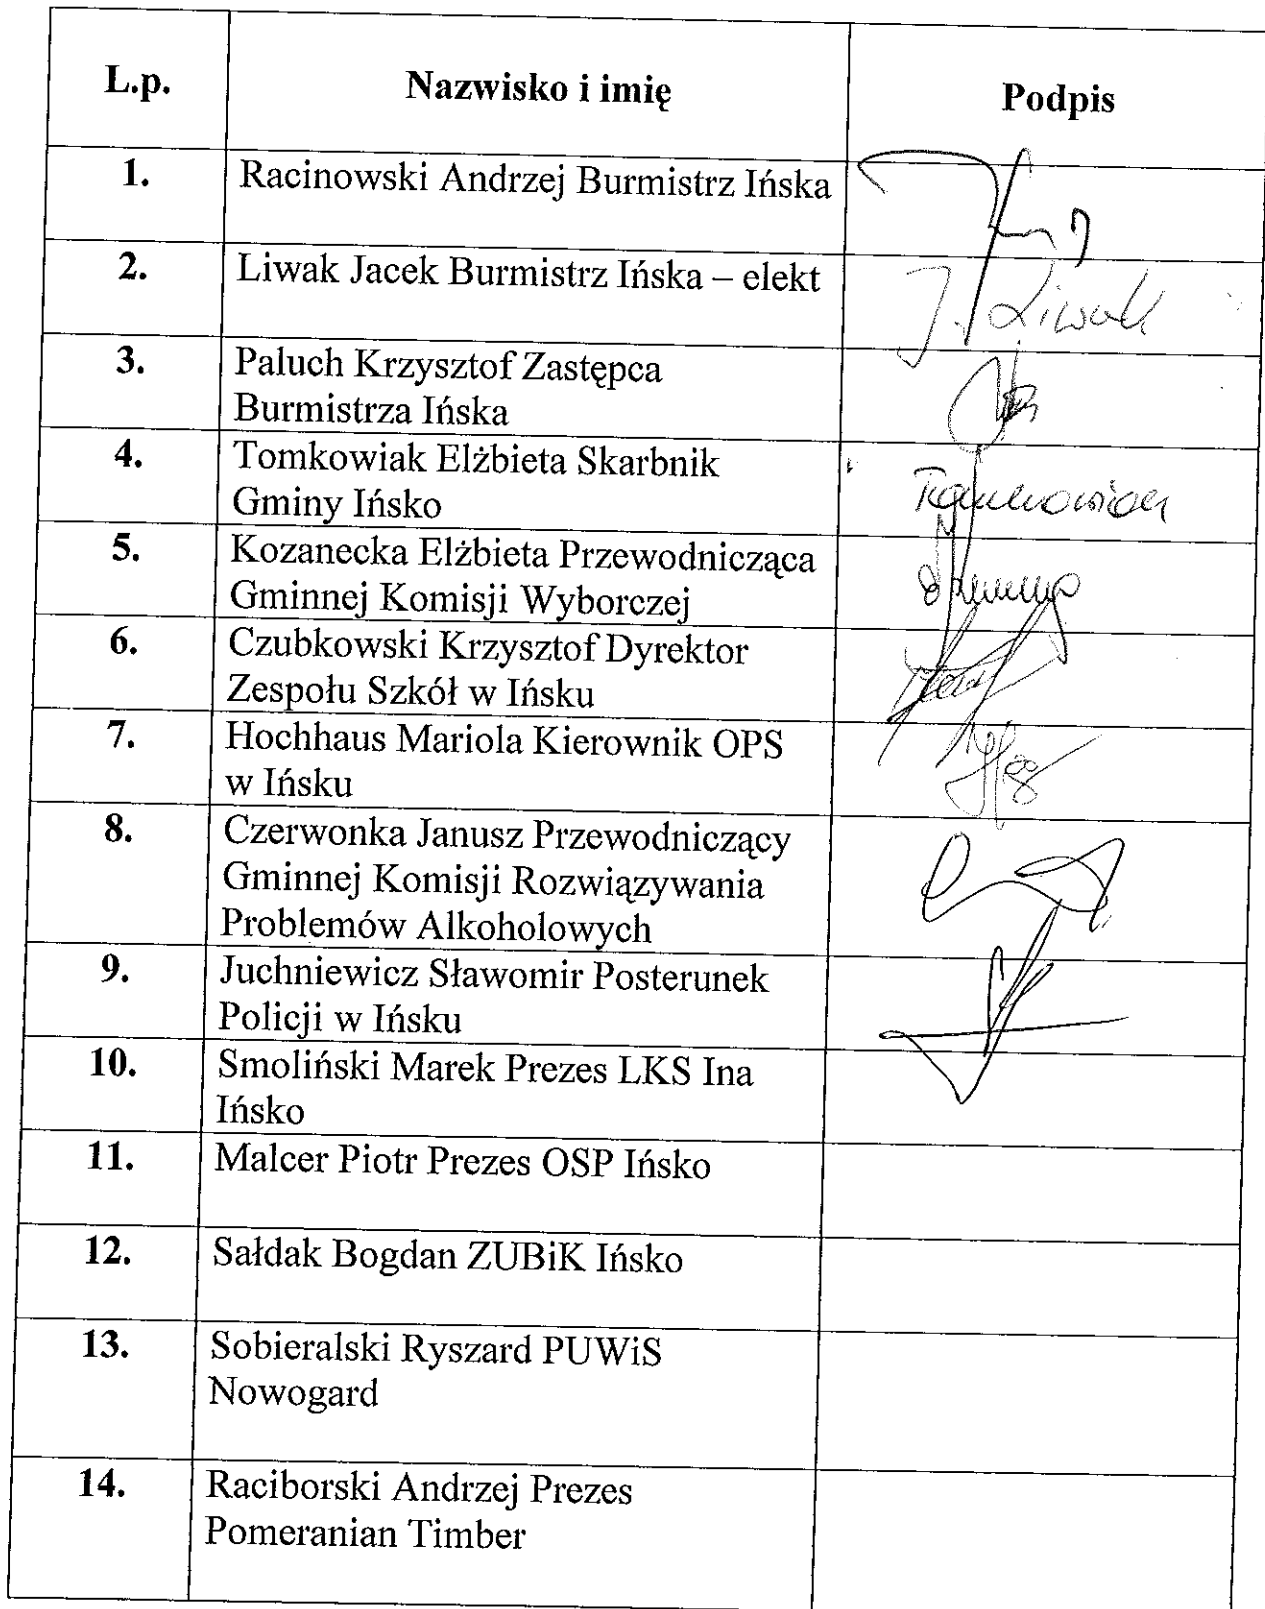 L.p. Nazwisko i imię Podpis
1. Racinowski Andrzej Burmistrz Ińska
2. Liwak Jacek Burmistrz Ińska – elekt J. Liwak
3. Paluch Krzysztof Zastępca
Burmistrza Ińska
4. Tomkowiak Elżbieta Skarbnik
Gminy Ińsko
5. Kozanecka Elżbieta Przewodnicząca
Gminnej Komisji Wyborczej
6. Czubkowski Krzysztof Dyrektor
Zespołu Szkół w Ińsku
7. Hochhaus Mariola Kierownik OPS
w Ińsku
8. Czerwonka Janusz Przewodniczący
Gminnej Komisji Rozwiązywania
Problemów Alkoholowych
9. Juchniewicz Sławomir Posterunek
Policji w Ińsku
10. Smoliński Marek Prezes LKS Ina
Ińsko
11. Malcer Piotr Prezes OSP Ińsko
12. Sałdak Bogdan ZUBiK Ińsko
13. Sobieralski Ryszard PUWiS
Nowogard
14. Raciborski Andrzej Prezes
Pomeranian Timber